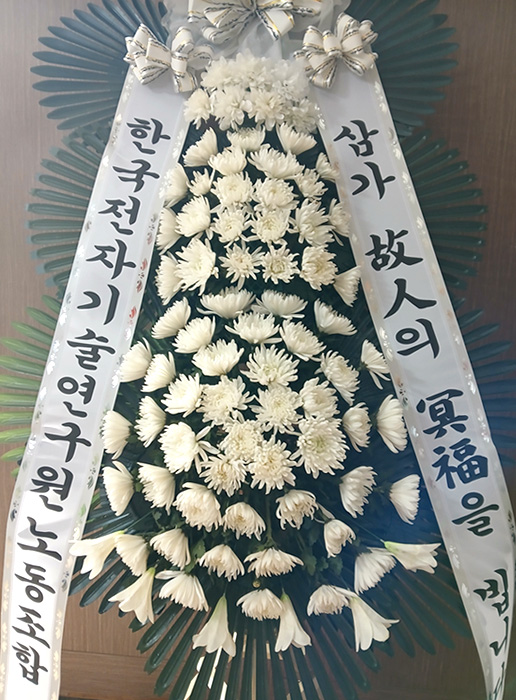 한국전자기술연구원 노동조합
삼가 故人의 冥福을 빕니다